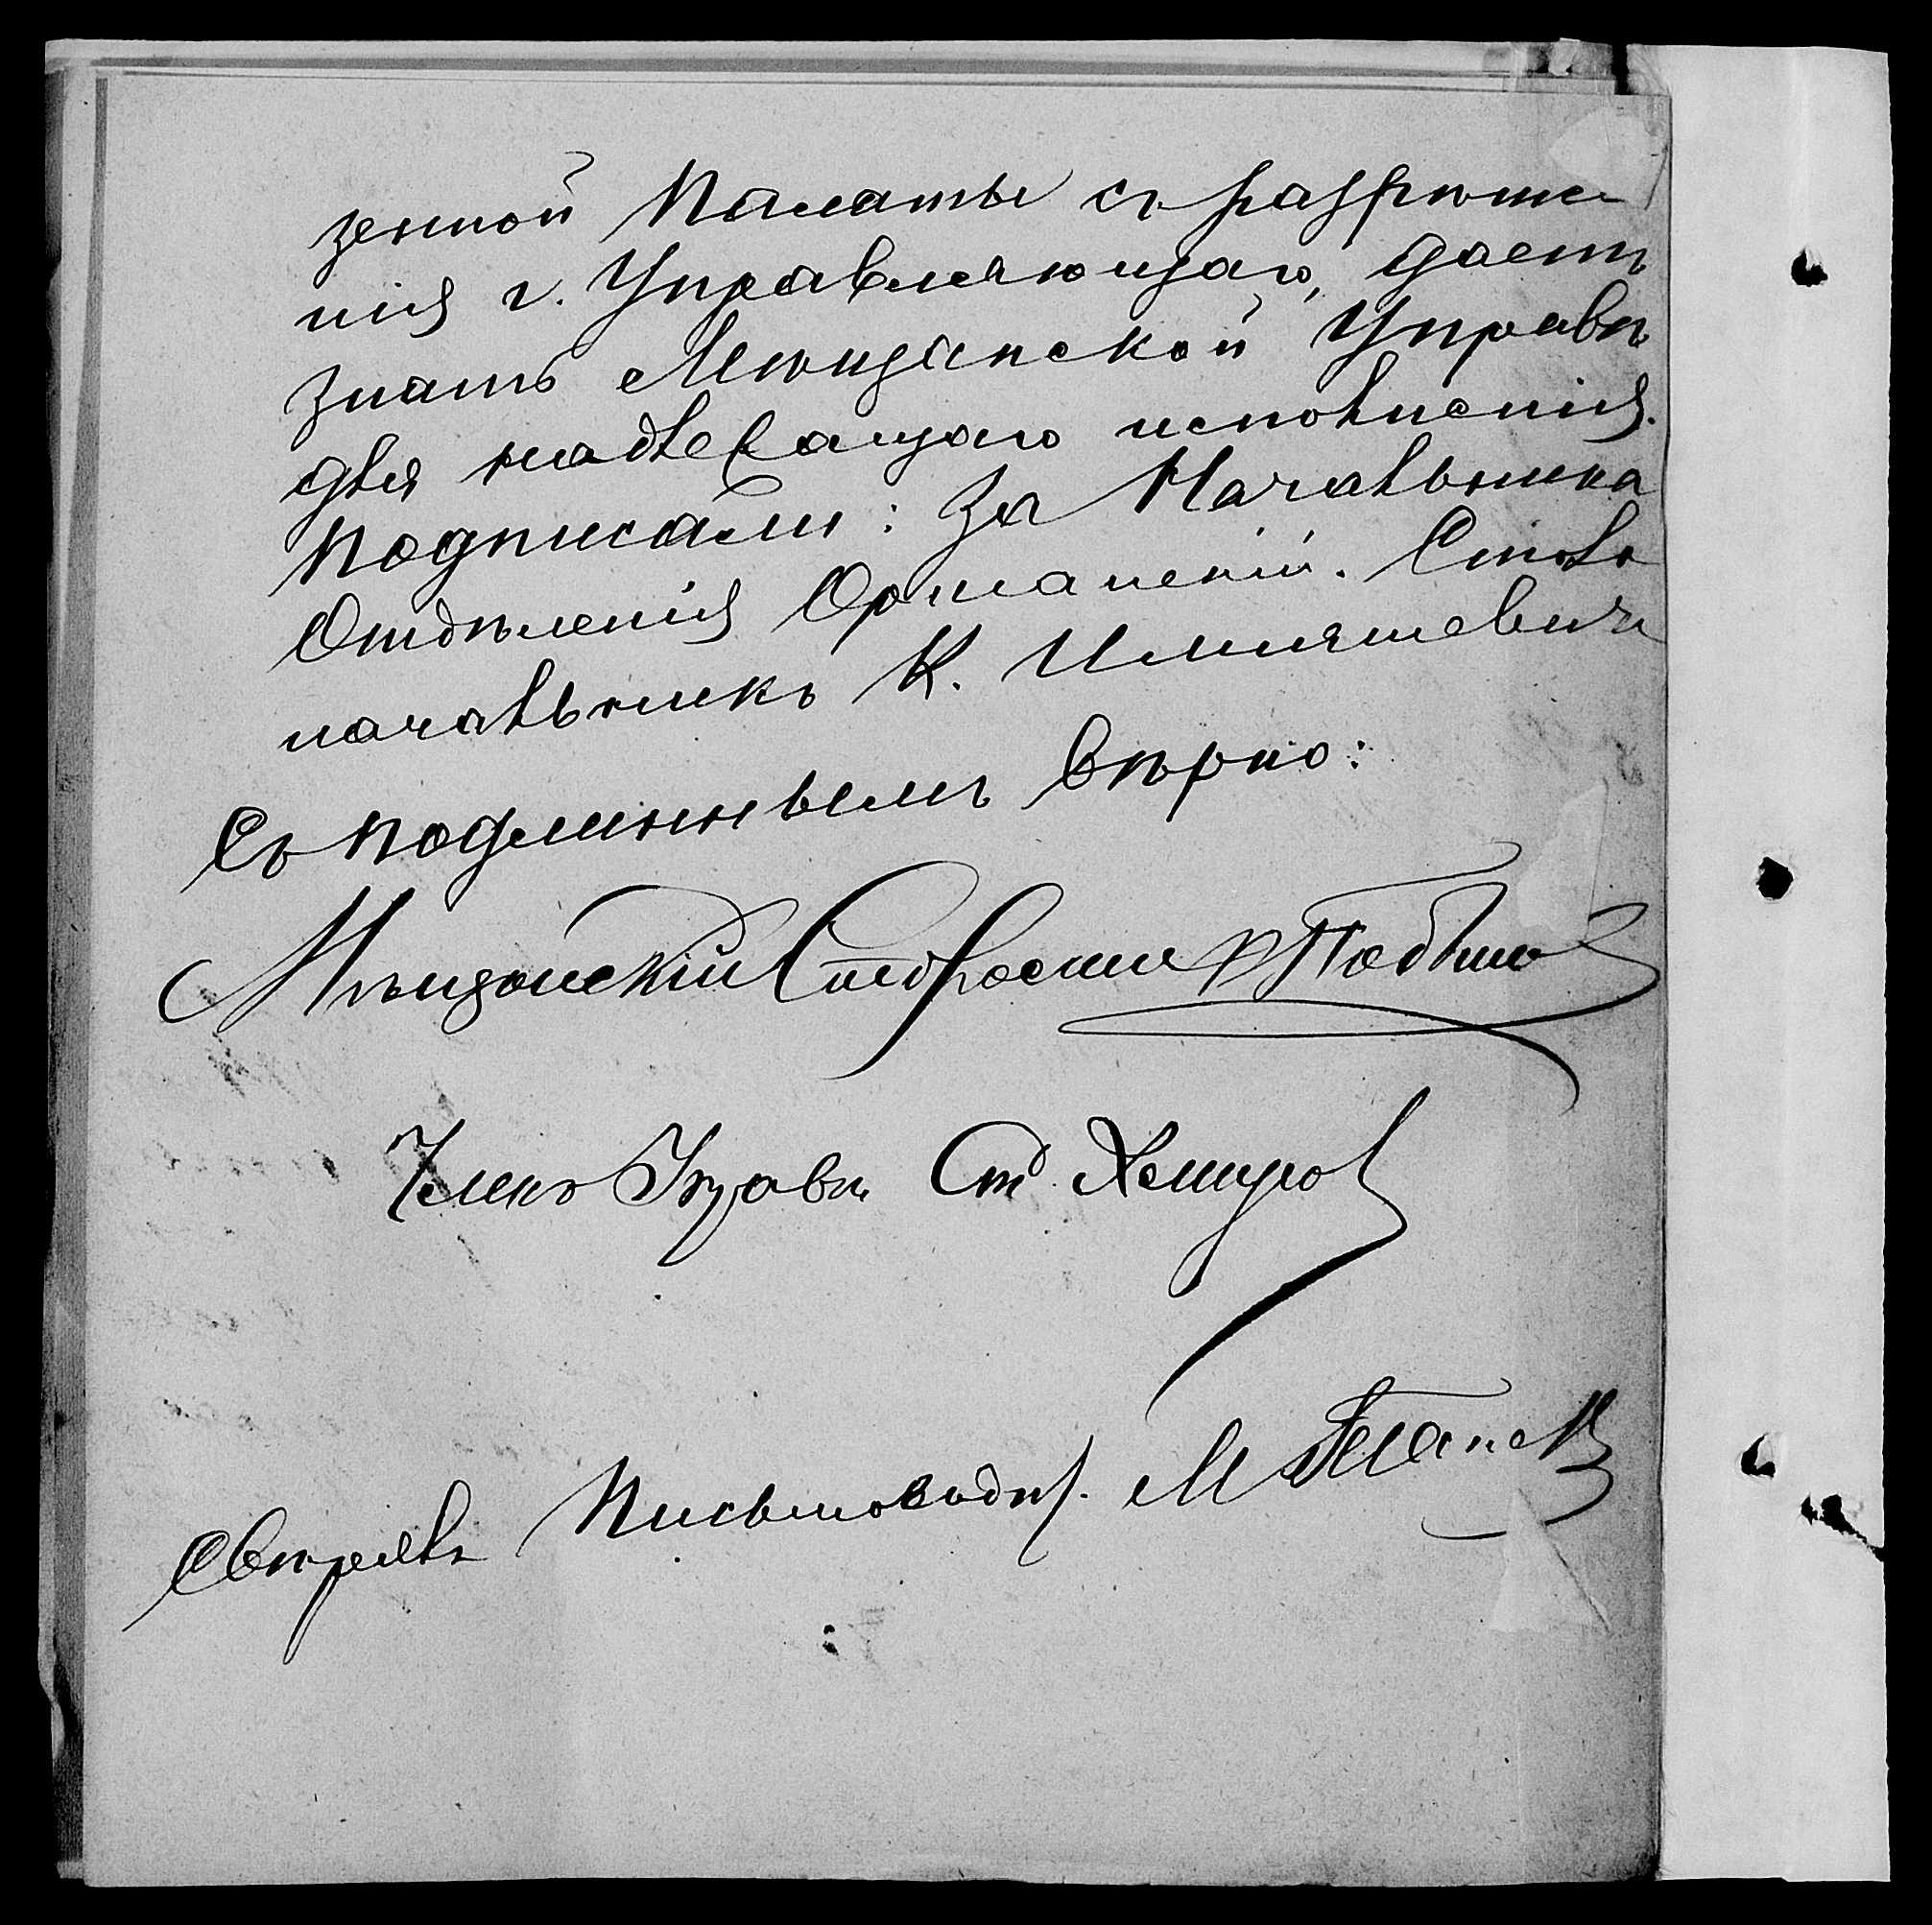 зенной Палаты съ разрѣше-
нія г. Управляющаго, даетъ
знать Мѣщанской Управѣ
для надлежащаго исполненія.
Подписали: За Начальника
Отдѣленія Оржанскій. Столо
начальникъ К. Имшяшевичъ
Съ подлиннымъ вѣрно:
Мѣщанскій Староста
Членъ Управы Ст.
Свѣрялъ Письмовод. М